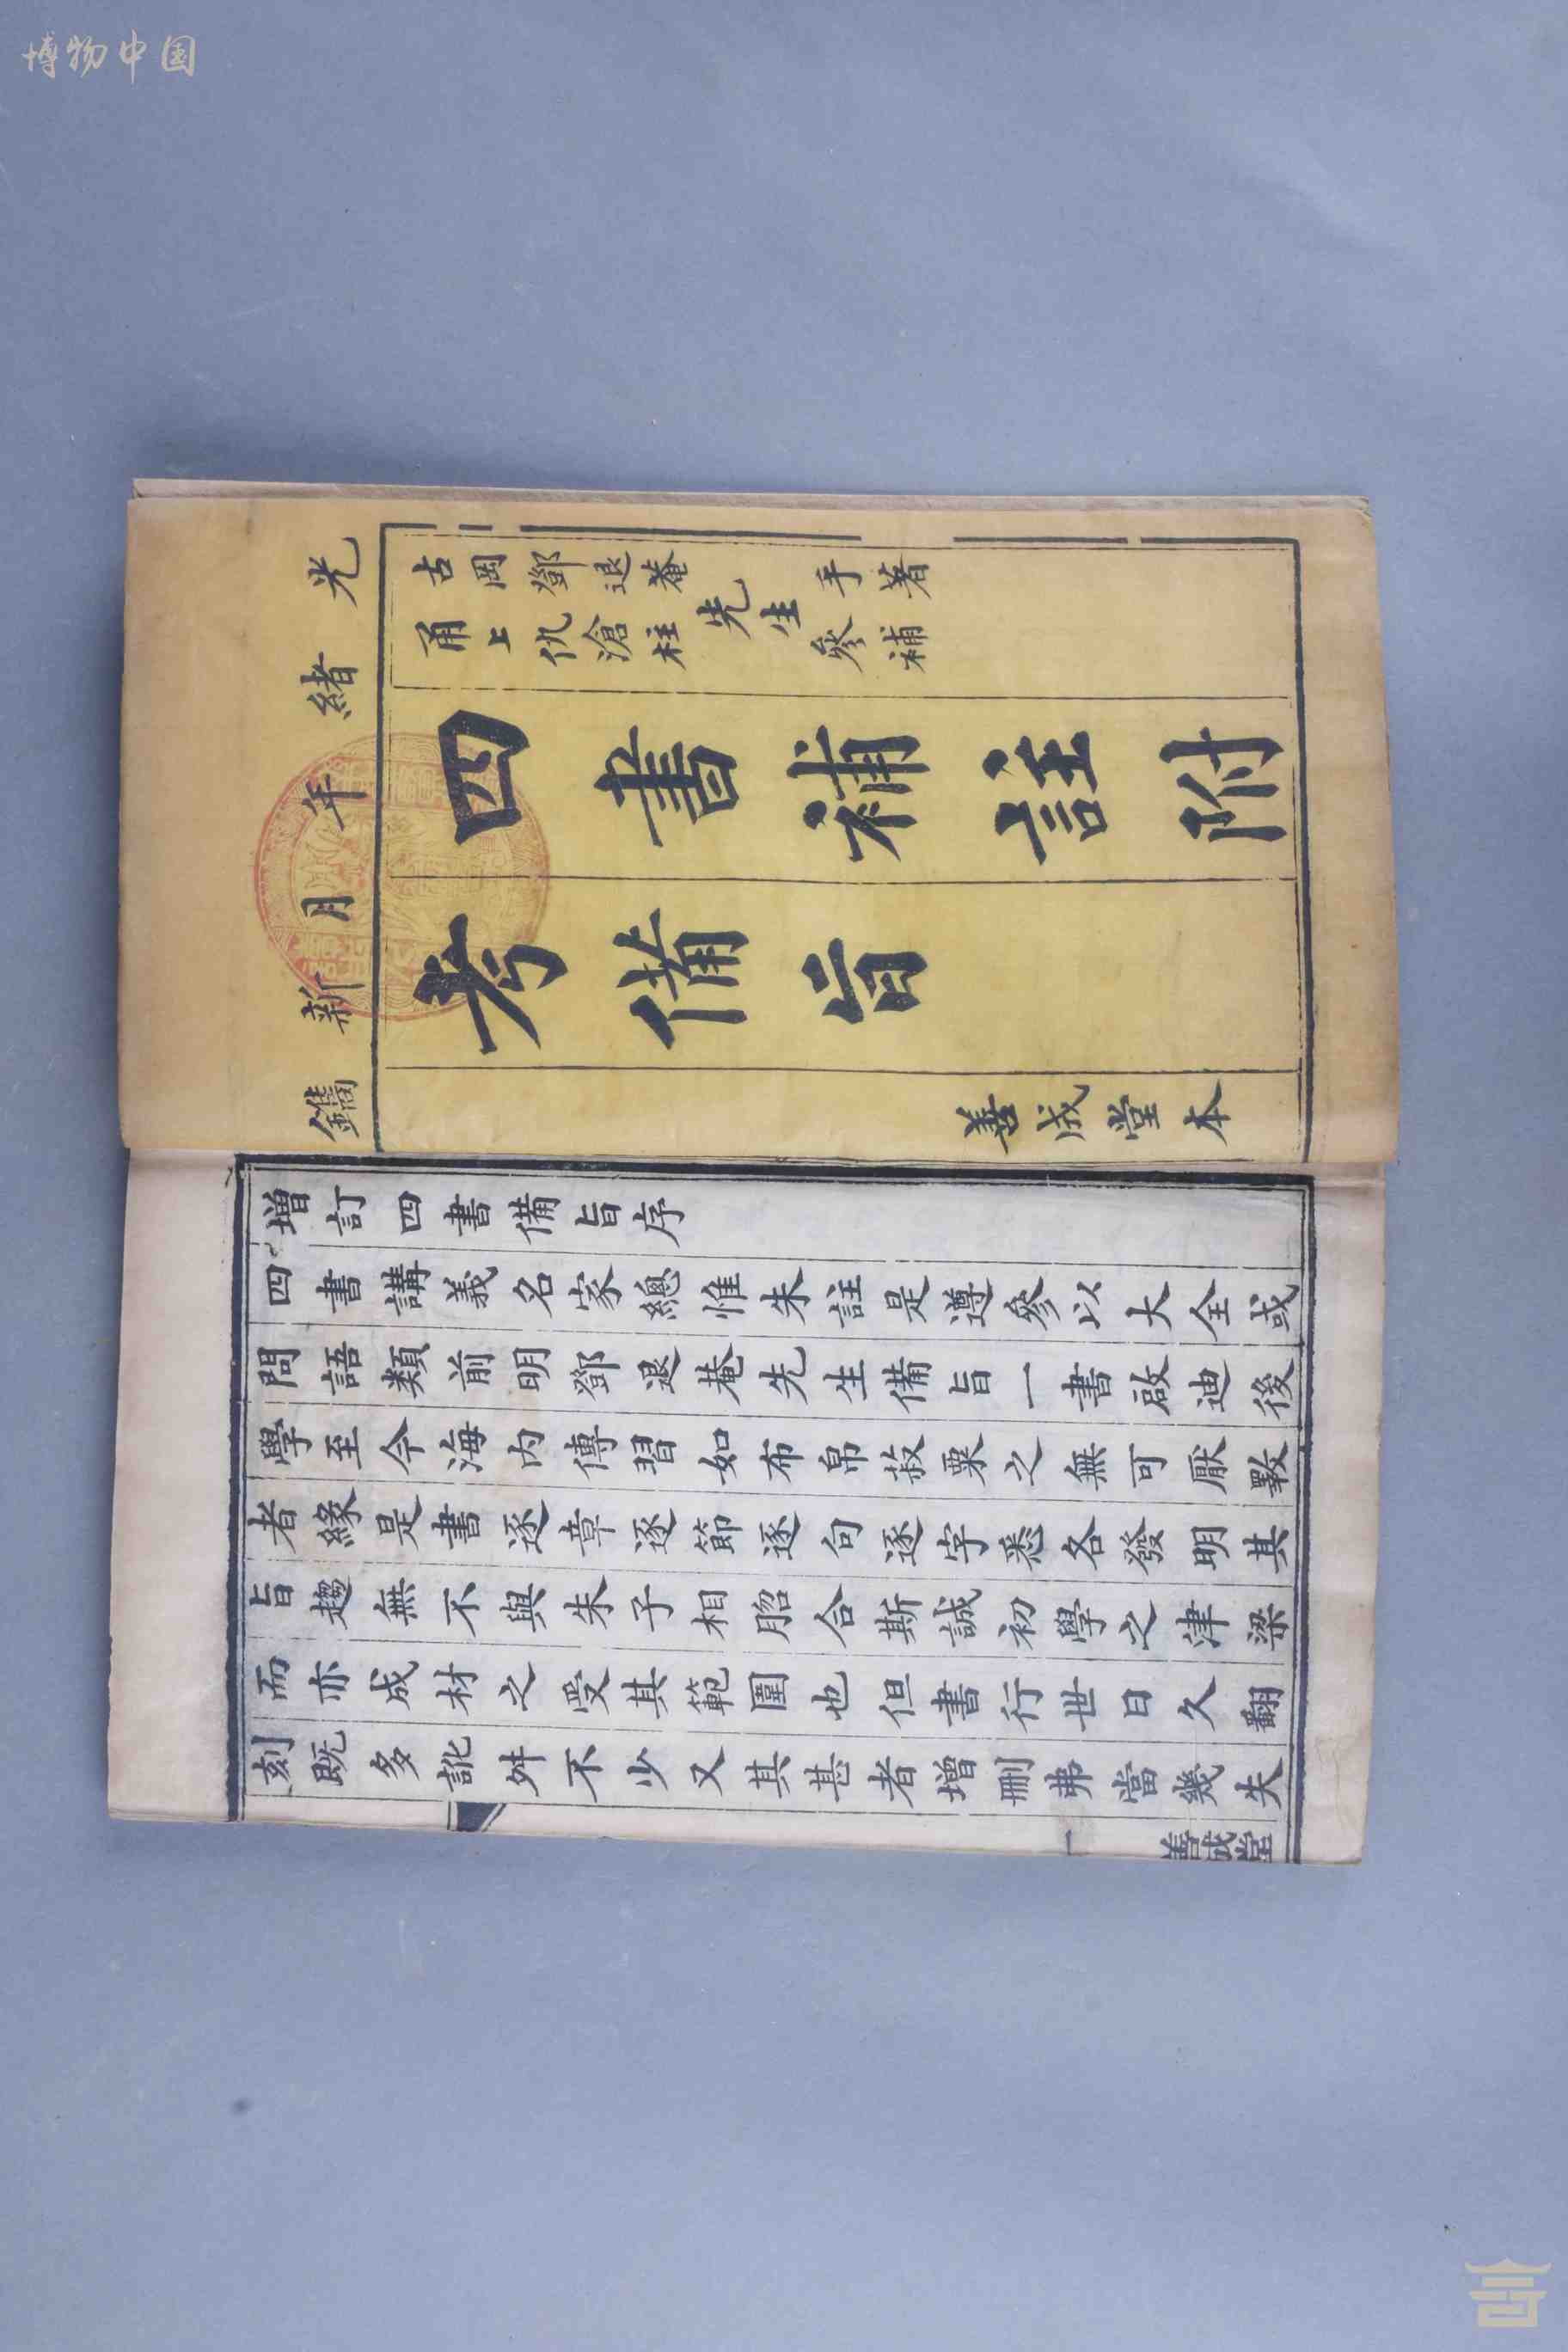 博物中国
光緒年月新鐫
古岡鄧退菴先生手著
甬上仇滄柱先生參補
四書補註附
考備旨
善成堂本
增訂四書備旨序
四書講義名家總惟朱註是遵參以大全或
問語類前明鄧退菴先生備旨一書啟迪後
學至今海内傳習如布帛菽粟之無可厭斁
者緣是書逐章逐節逐句逐字悉各發明其
旨趨無不與朱子相脗合斯誠初學之津梁
而亦成材之受其範圍也但書行世日久翻
刻既多訛舛不少又其甚者增刪弗當幾失
一
善成堂